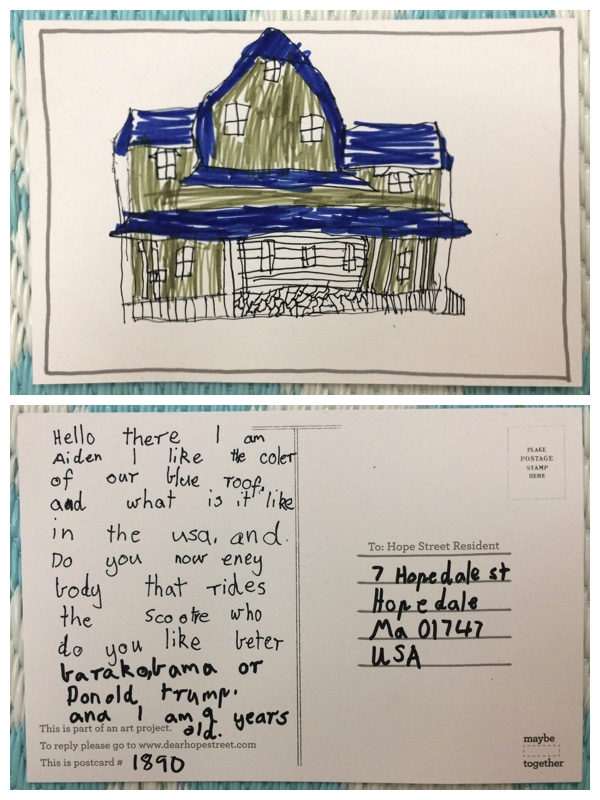 Hello there I am
Aiden I like the coler
of our blue roof,
and what is it like
in the usa. and.
Do you now eney
body that rides
the scootre who
do you like beter
barakobama or
Donold trump.
and I am 9 years
old.
This is part of an art project.
To reply please go to www.dearhopestreet.com
This is postcard # 1890
PLACE
POSTAGE
STAMP
HERE
To: Hope Street Resident
7 Hopedale st
Hopedale
Ma 01747
USA
maybe
together